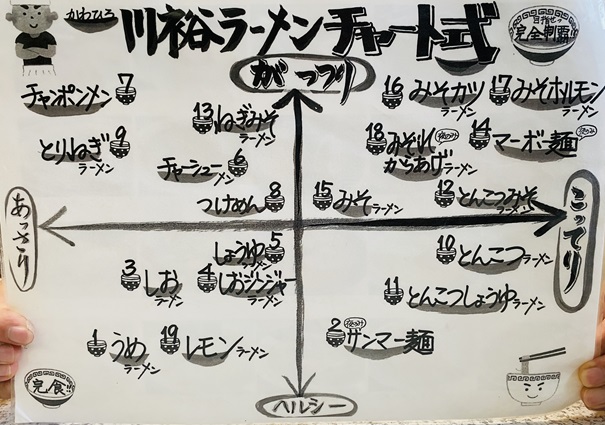 かわひろ
川裕ラーメンチャート式
目指せ
完全制覇
がっつり
7 チャンポンメン
13 ねぎみそラーメン
16 みそカツラーメン
17 みそホルモンラーメン
9 とりねぎラーメン
6 チャーシューメン
18 みそ
からあげラーメン
14 マーボー麺
8 つけめん
15 みそラーメン
12 とんこつみそラーメン
あっさり
こってり
5 しょうゆラーメン
10 とんこつラーメン
3 しおラーメン
4 しおジンジャーラーメン
11 とんこつしょうゆラーメン
1 うめラーメン
19 レモンラーメン
2 サンマー麺
完食!!
ヘルシー